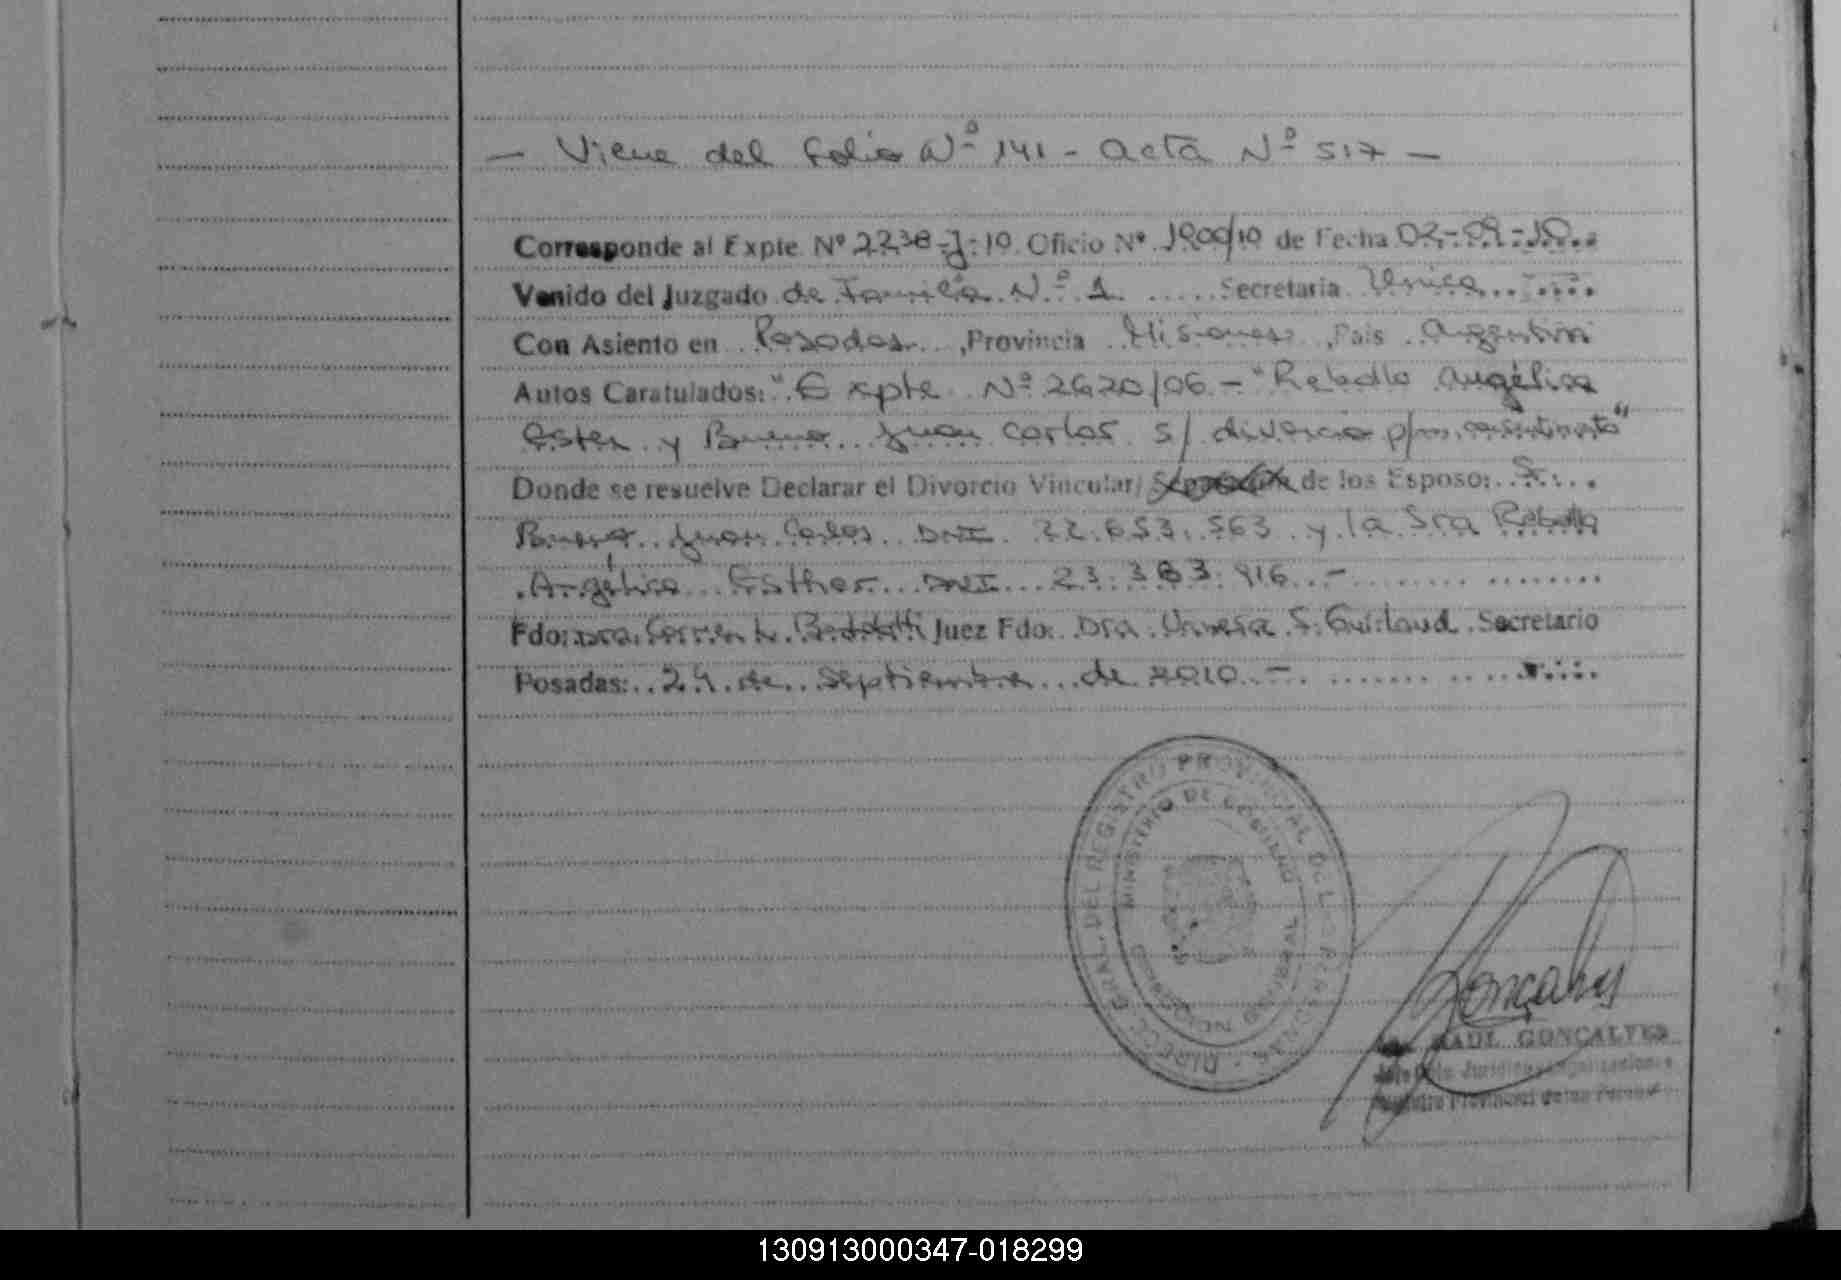 — Viene del folio Nº 141 - acta Nº 517 —
Corresponde al Expte. Nº 2238-J-10. Oficio Nº 1900/10 de Fecha 02-09-10
Venido del Juzgado de Familia Nº 1 Secretaria Unica
Con Asiento en Posadas, Provincia Misiones, Pais Argentina
Autos Caratulados: "Expte Nº 2620/06 - "Rebollo Angélica
Ester y Bueno Juan Carlos s/ divorcio p/
Donde se resuelve Declarar el Divorcio Vincular/ de los Esposos: Sr.
Bueno Juan Carlos DNI 22.653.563 y la Sra Rebollo
Angélica Esther DNI 23.383.916 -
Fdo: Dra. Juez Fdo: Dra. S. Secretario
Posadas: 24 de Septiembre de 2010 -
DIRECC. GRAL. DEL REGISTRO PROVINCIAL DE L PERSONAS
MINISTERIO DE GOBIERNO
RAUL GONÇALVES
Registro Provincial de las Personas
130913000347-018299